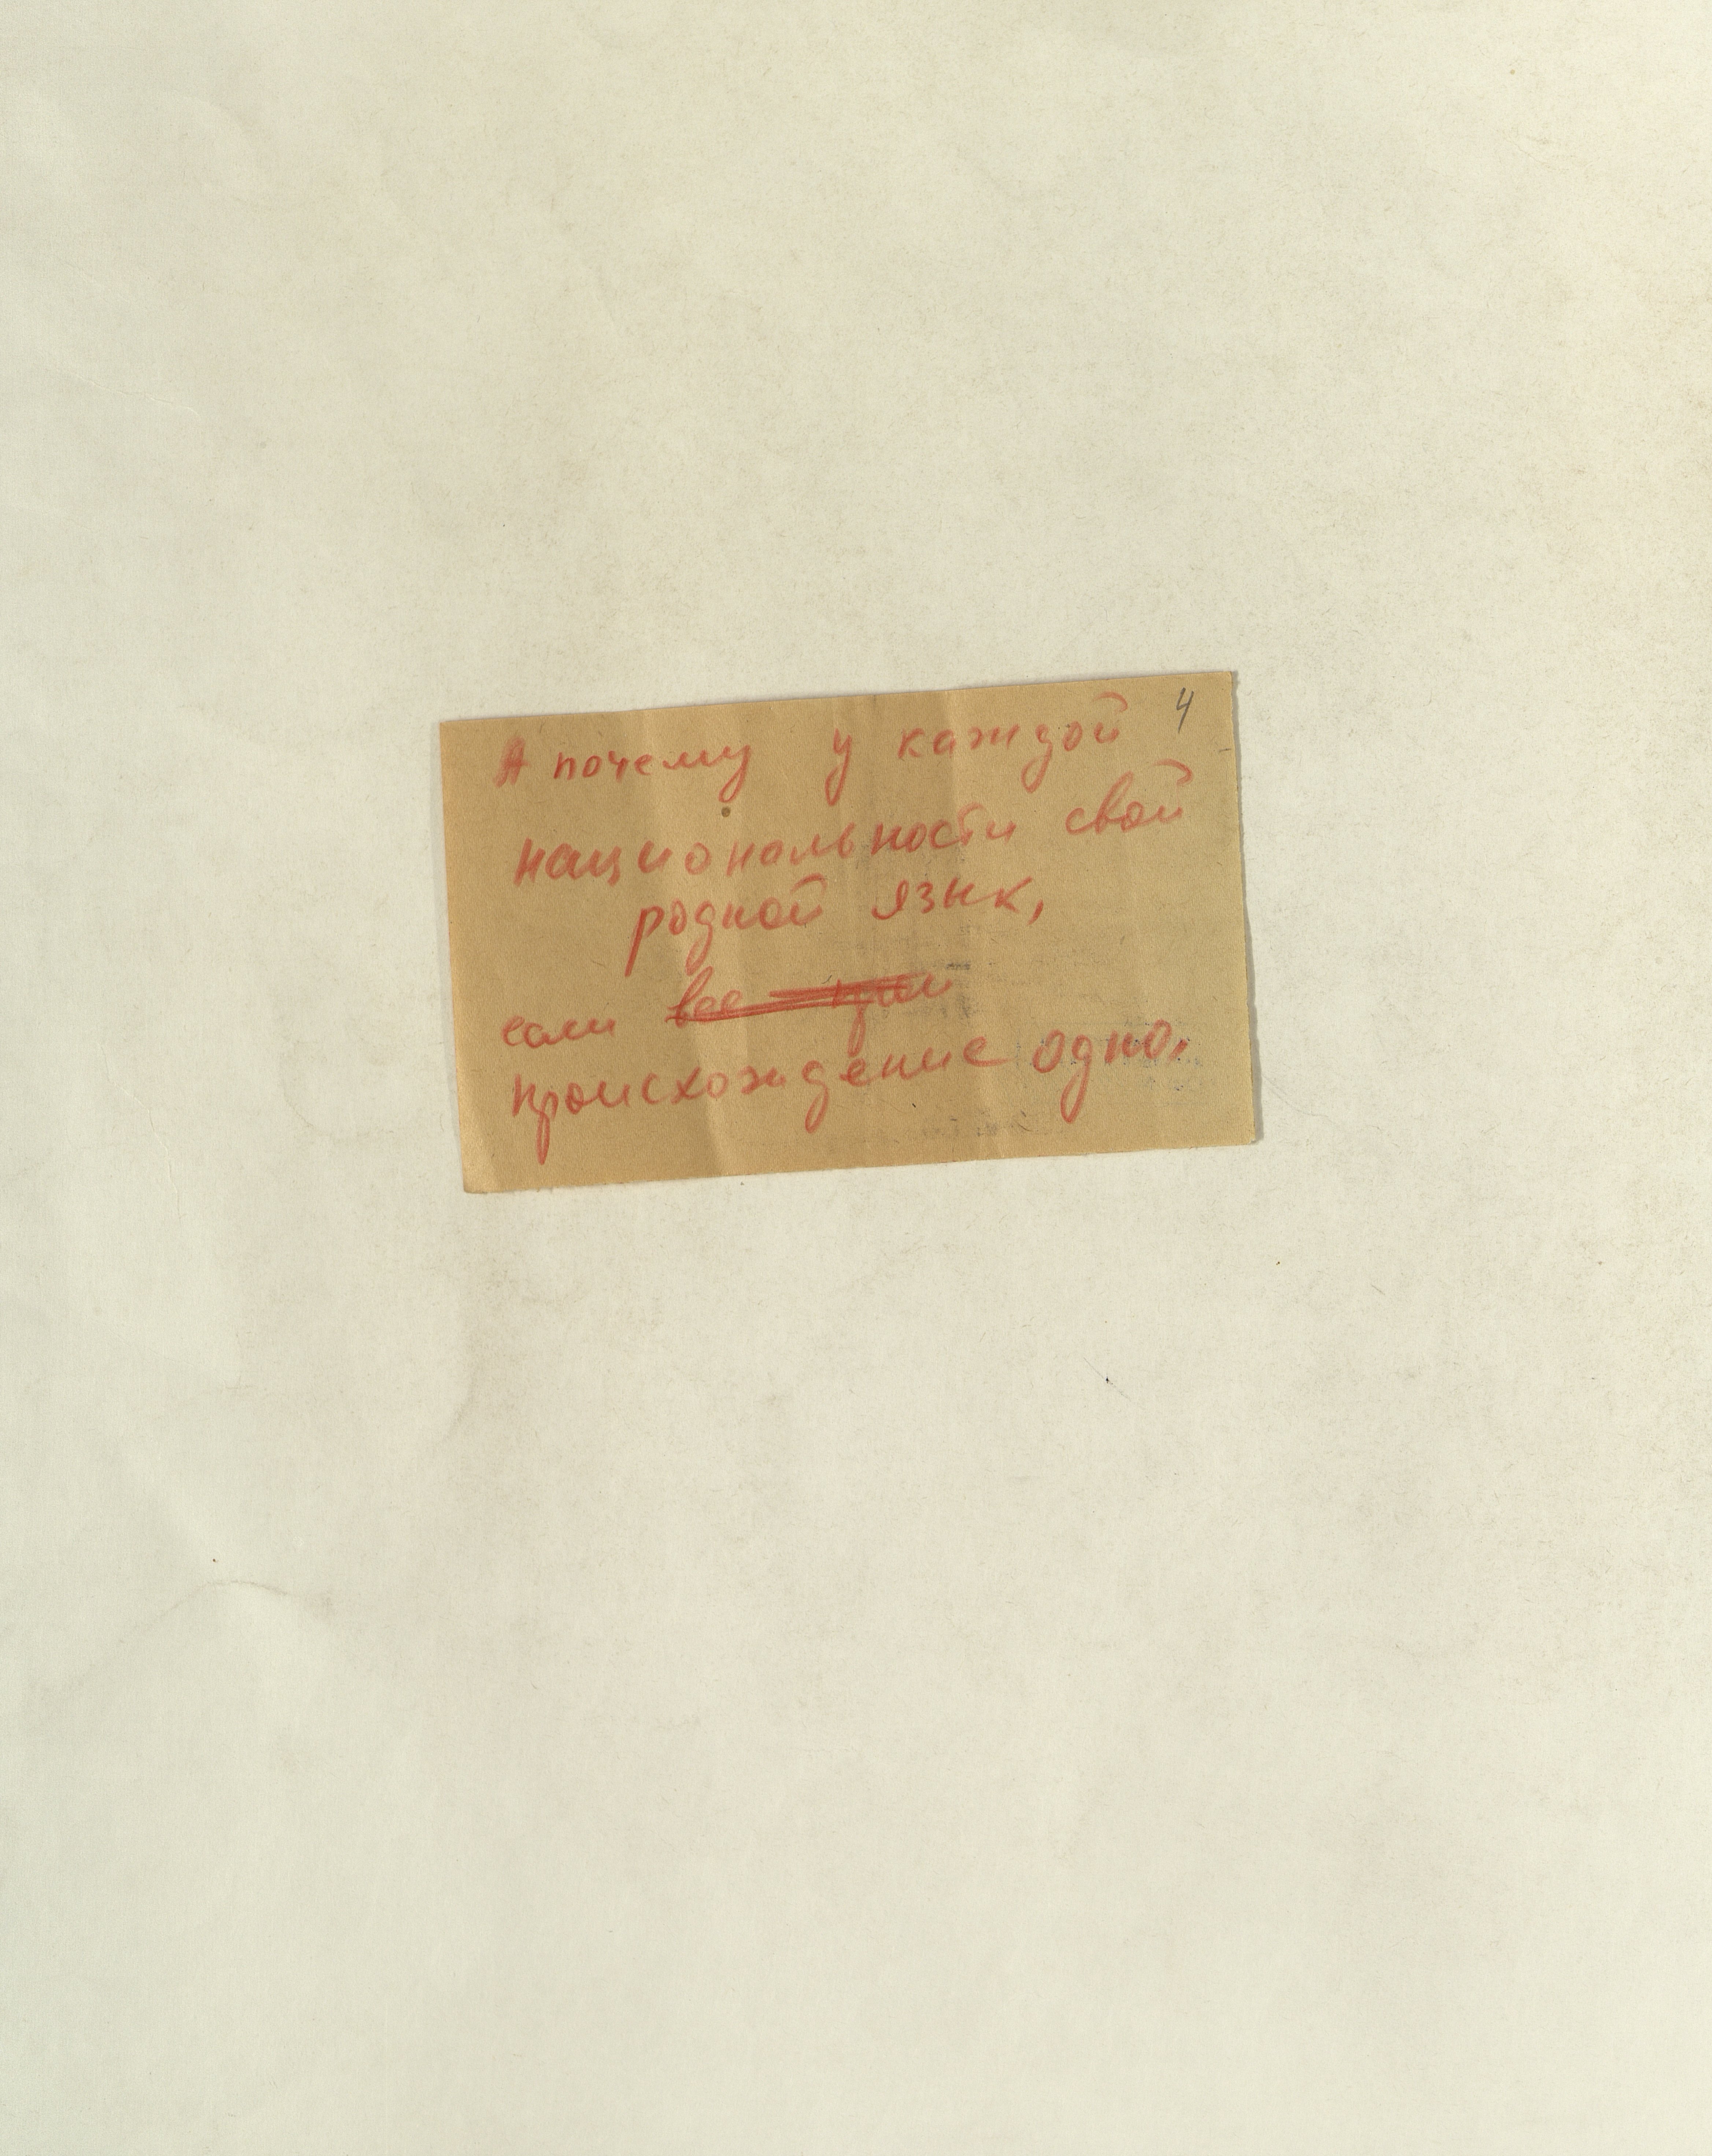 4
А почему у каждой
национальности свой
родной язык,
если все
происхождение одно.